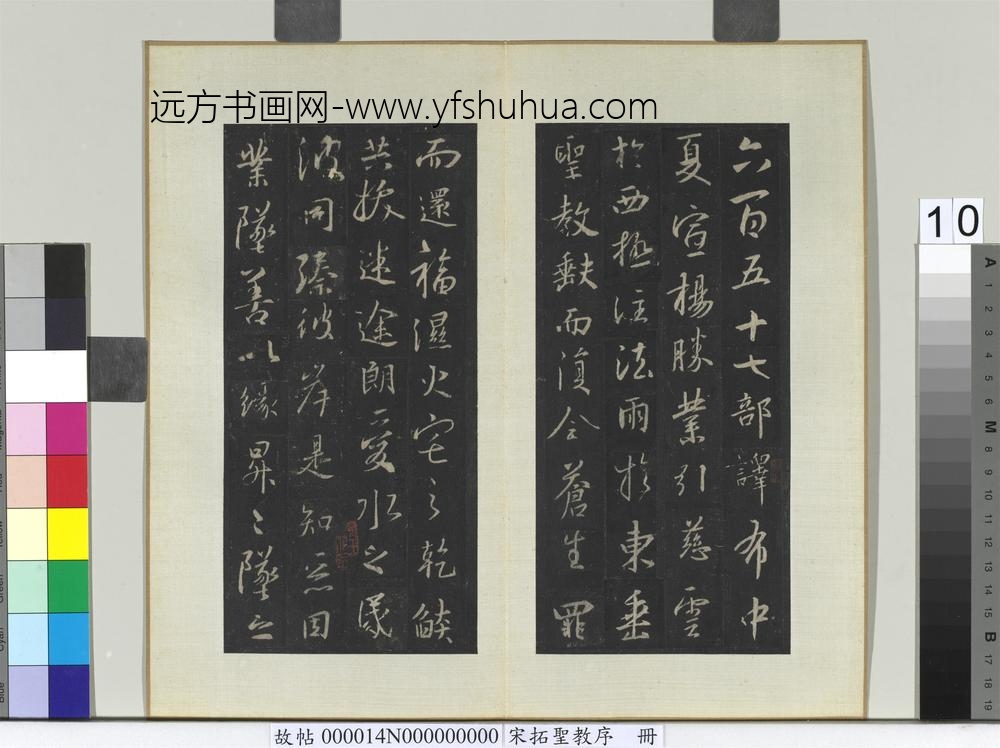 远方书画网-www.yfshuhua.com
六百五十七部譯布中
夏宣楊勝業引慈雲
於西極注法雨於東垂
聖教缺而復全蒼生罪
而還福濕火宅之乾燄
共拔迷途朗愛水之昏
波同臻彼岸是知惡因
業墜善以緣昇昇墜之
10
A
1
2
3
4
5
6
M
8
9
10
11
12
13
14
15
B
17
18
19
故帖 000014N000000000 宋拓聖教序 冊